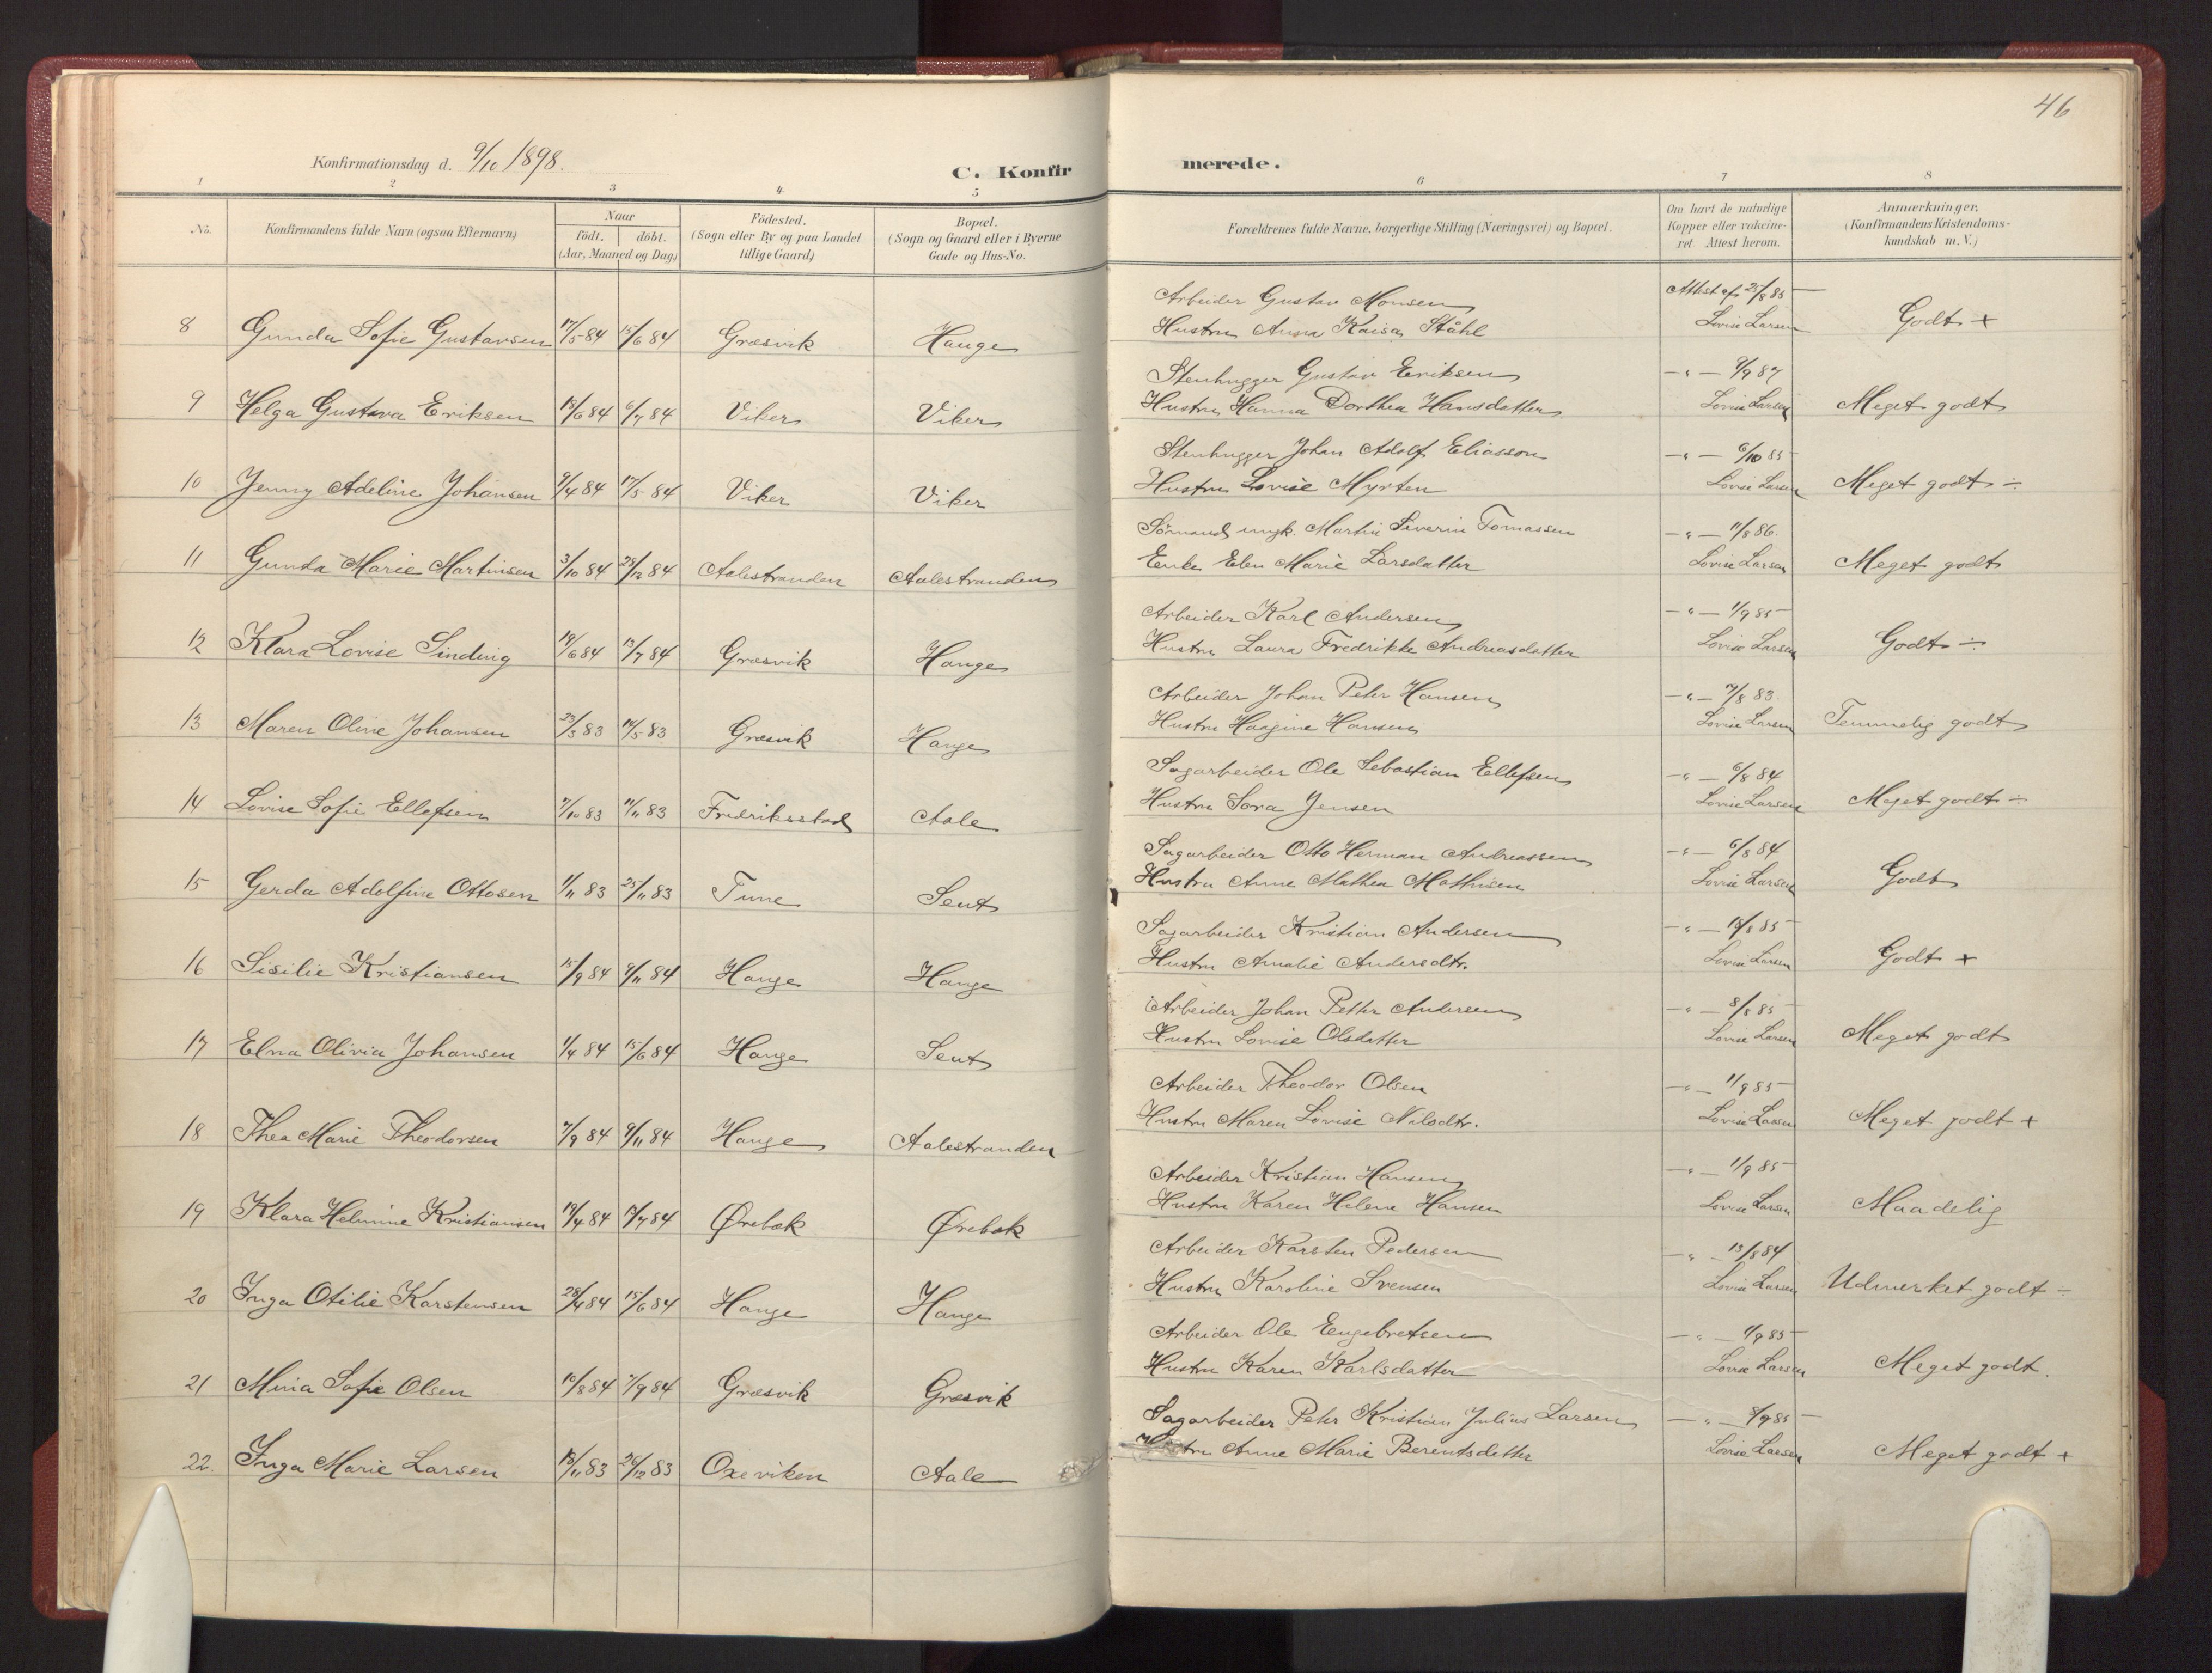 46
Konfirmationsdag d. 9/10 1898.
C. Konfirmerede.
1 2 3 4 5 6 7 8
No.
Konfirmandens fulde Navn (ogsaa Efternavn)
Naar
födt. döbt.
(Aar, Maaned og Dag)
Födested.
(Sogn eller By og paa Landet
tillige Gaard)
Bopæl.
(Sogn og Gaard eller i Byerne
Gade og Hus-No.
Forældrenes fulde Navne, borgerlige Stilling (Næringsvei) og Bopæl.
Om havt de naturlige
Kopper eller vakcineret Attest herom.
Anmærkninger.
(Konfirmandens Kristendomskundskab m. V.)
8 Gunda Sofie Gustavsen 17/5 84 15/6 84 Græsvik Hauge
Arbeider Gustav Monsen Attest af 25/8 85
Hustru Anna Kaisa Ståhl Lovise Larsen Godt +
9 Helga Gustava Eriksen 18/6 84 6/7 84 Viker Viker
Stenhugger Gustav Eriksen —"— 9/9 87
Hustru Hanna Dorthea Hansdatter Lovise Larsen Meget godt
10 Jenny Adeline Johansen 9/4 84 17/5 84 Viker Viker
Stenhugger Johan Adolf Eliasson —"— 6/10 85
Hustru Lovise Myrten Lovise Larsen Meget godt ÷
11 Gunda Marie Martinsen 3/10 84 28/12 84 Aalestranden Aalestranden
Sömand ungk. Martin Severin Tomassen —"— 11/8 86.
Enke Elen Marie Larsdatter Lovise Larsen Meget godt
12 Klara Lovise Sinding 19/6 84 13/7 84 Græsvik Hauge
Arbeider Karl Andersen —"— 1/9 85
Hustru Laura Fredrikke Andreasdatter Lovise Larsen Godt ÷
13 Maren Oline Johansen 23/3 83 14/5 83 Græsvik Hauge
Arbeider Johan Peter Hansen —"— 7/8 83.
Hustru Haagine Hansen Lovise Larsen Temmelig godt
14 Lovise Sofie Ellefsen 7/10 83 11/11 83 Fredriksstad Aale
Sagarbeider Ole Sebastian Ellefsen —"— 6/8 84
Hustru Sora Jensen Lovise Larsen Meget godt ÷
15 Gerda Adolfine Ottosen 1/11 83 25/11 83 Tune Seut
Sagarbeider Otto Herman Andreassen —"— 6/8 84
Hustru Anne Mathea Mathisen Lovise Larsen Godt
16 Sisilie Kristiansen 15/9 84 9/11 84 Hauge Hauge
Sagarbeider Kristian Andersen —"— 18/8 85
Hustru Amalie Andersdtr. Lovise Larsen Godt +
17 Elna Olivia Johansen 1/4 84 15/6 84 Hauge Seut
Arbeider Johan Petter Andersen —"— 8/8 85
Hustru Lovise Olsdatter Lovise Larsen Meget godt
18 Thea Marie Theodorsen 7/9 84 9/11 84 Hauge Aalestranden
Arbeider Theodor Olsen —"— 1/9 85
Hustru Maren Lovise Nilsdtr. Lovise Larsen Meget godt +
19 Klara Helmine Kristiansen 19/4 84 17/7 84 Ørebæk Ørebæk
Arbeider Kristian Hansen —"— 1/9 85
Hustru Karen Helene Hansen Lovise Larsen Maadelig
20 Inga Otilie Karstensen 28/4 84 15/6 84 Hauge Hauge
Arbeider Karsten Pedersen —"— 13/8 84
Hustru Karoline Svensen Lovise Larsen Udmerket godt ÷
21 Mina Sofie Olsen 10/8 84 7/9 84 Græsvik Græsvik
Arbeider Ole Eengebretsen —"— 1/9 85
Hustru Karen Karlsdatter Lovise Larsen Meget godt.
22. Inga Marie Larsen 18/11 83 26/12 83 Oxeviken Aale
Sagarbeider Peter Kristian Julius Larsen —"— 8/9 85
Hustru Anne Marie Berentsdatter Lovise Larsen Meget godt +